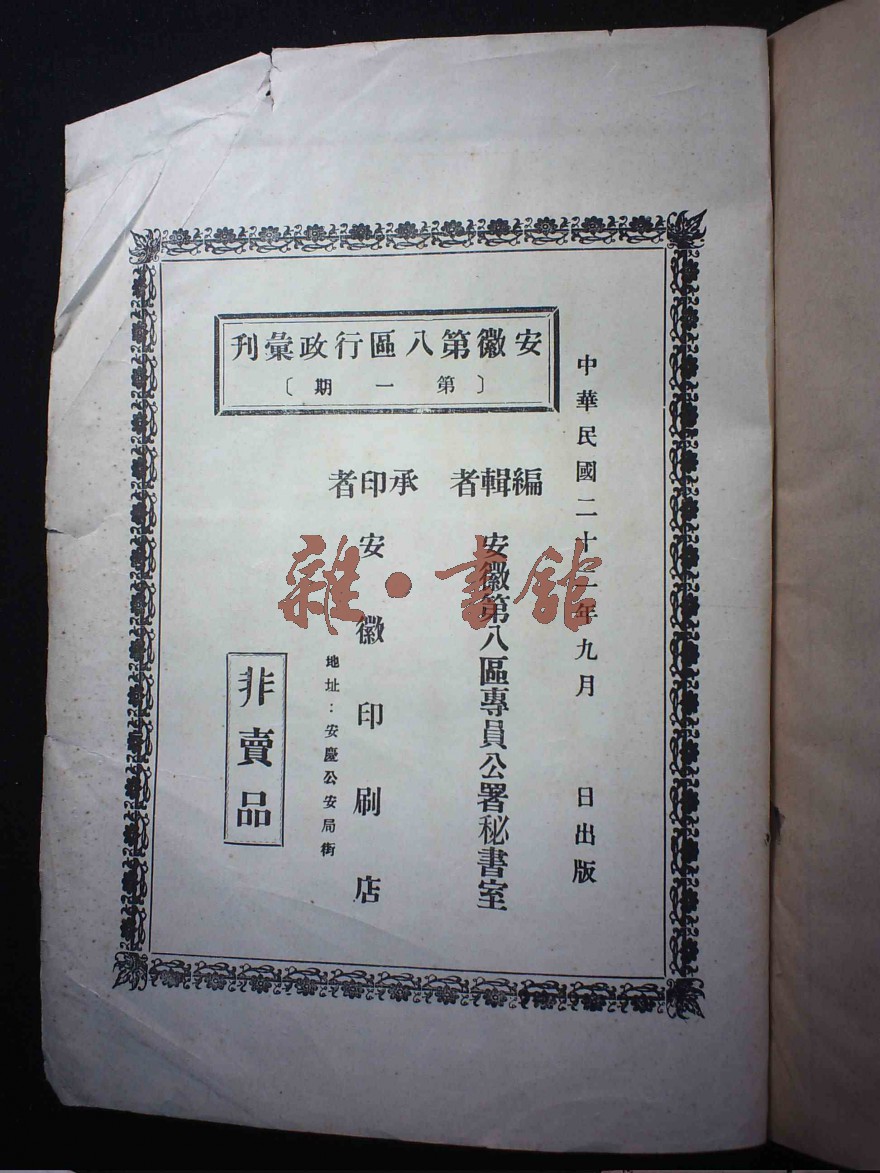 中華民國二十二年九月　日出版
安徽第八區行政彙刊
〔第一期〕
編輯者
安徽第八區專員公署秘書室
承印者
安徽印刷店
地址：安慶公安局街
非賣品
雜·書館